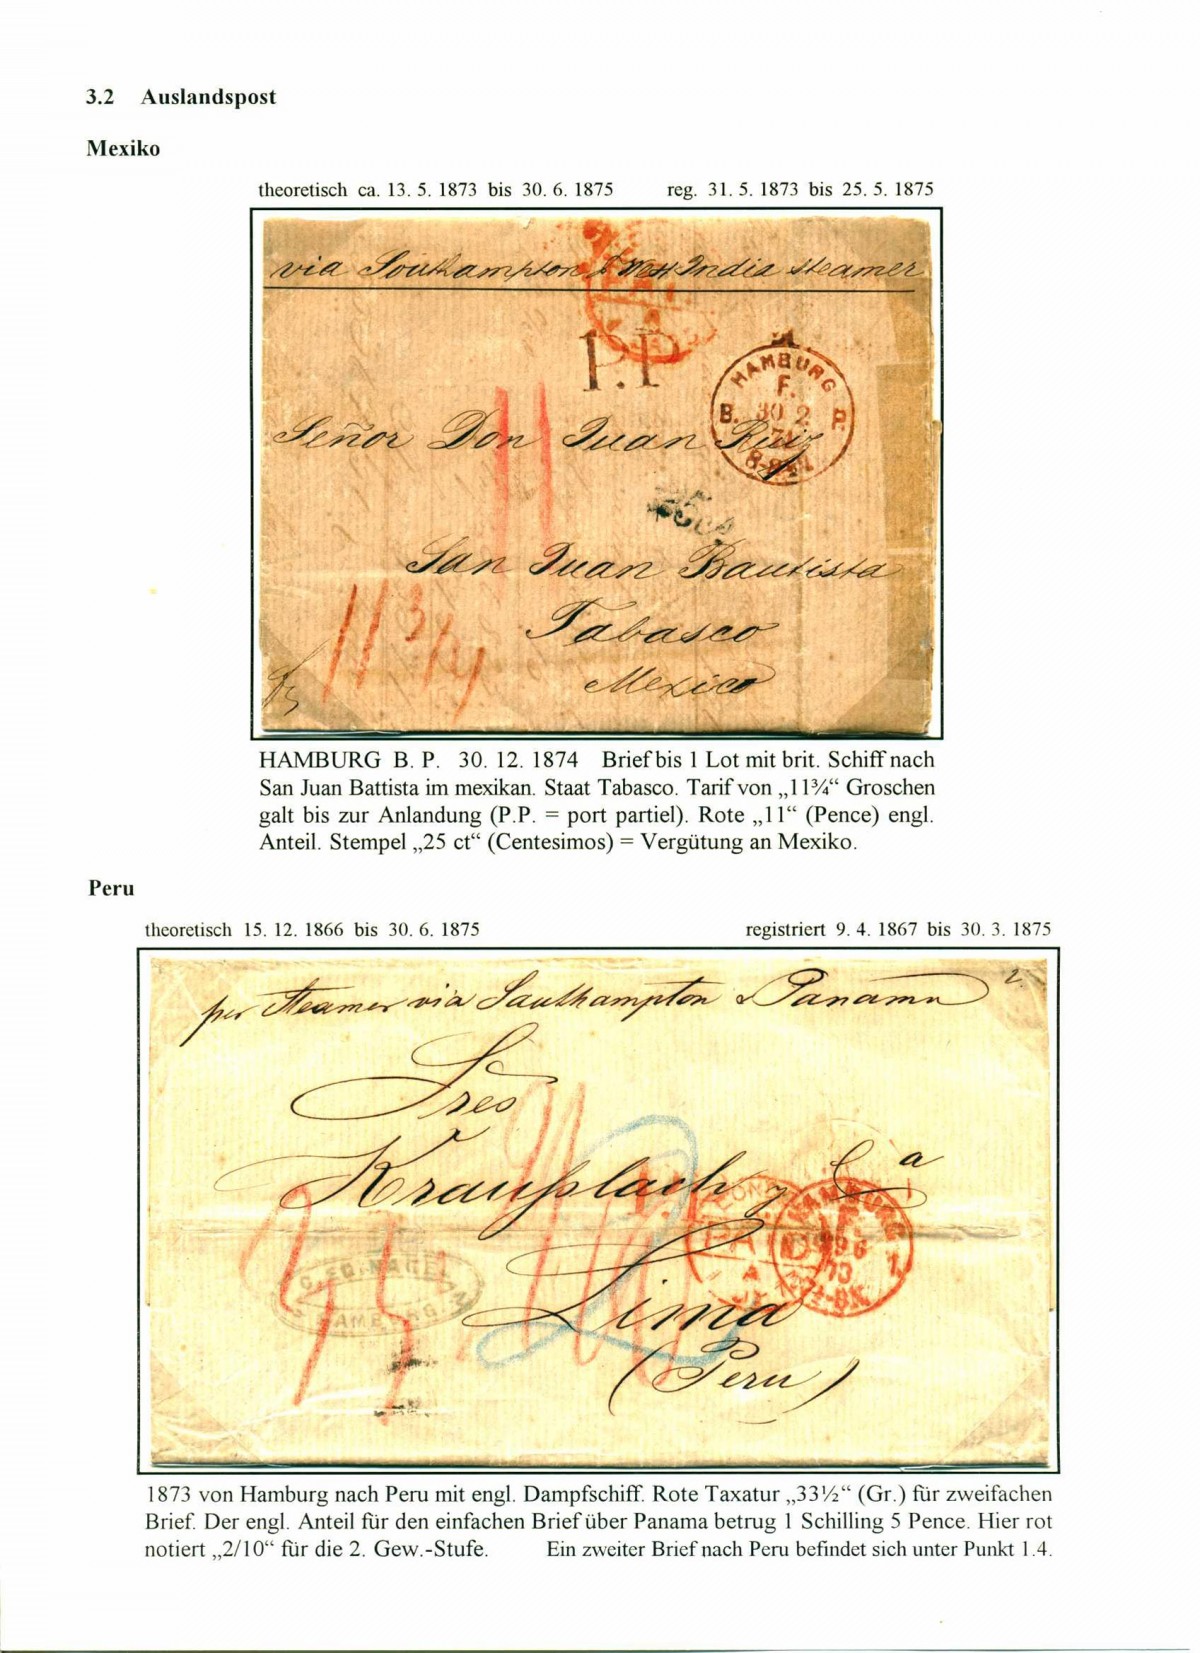 3.2 Auslandspost
Mexiko
theoretisch ca. 13. 5. 1873 bis 30. 6. 1875 reg. 31. 5. 1873 bis 25. 5. 1875
via Southampton & West India steamer
P.P
HAMBURG
F.
B. 30 2 P.
Señor Don Juan Ruiz
11
San Juan Bautista
Tabasco
11 3/4
Mexico
HAMBURG B. P. 30. 12. 1874 Brief bis 1 Lot mit brit. Schiff nach
San Juan Battista im mexikan. Staat Tabasco. Tarif von „11¾“ Groschen
galt bis zur Anlandung (P.P. = port partiel). Rote „11“ (Pence) engl.
Anteil. Stempel „25 ct“ (Centesimos) = Vergütung an Mexiko.
Peru
theoretisch 15. 12. 1866 bis 30. 6. 1875 registriert 9. 4. 1867 bis 30. 3. 1875
per Steamer via Southampton & Panama 2
Sres
Kraußlach y Ca
PAID
HAMBURG
73
HAMBURG
Lima
(Peru)
1873 von Hamburg nach Peru mit engl. Dampfschiff. Rote Taxatur „33½“ (Gr.) für zweifachen
Brief. Der engl. Anteil für den einfachen Brief über Panama betrug 1 Schilling 5 Pence. Hier rot
notiert „2/10“ für die 2. Gew.-Stufe. Ein zweiter Brief nach Peru befindet sich unter Punkt 1.4.